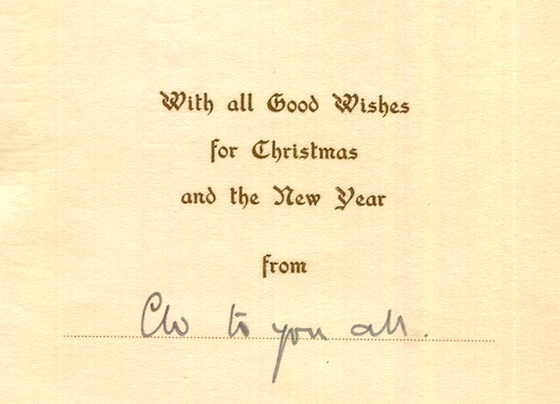 With all Good Wishes
for Christmas
and the New Year
from
Clo to you all.